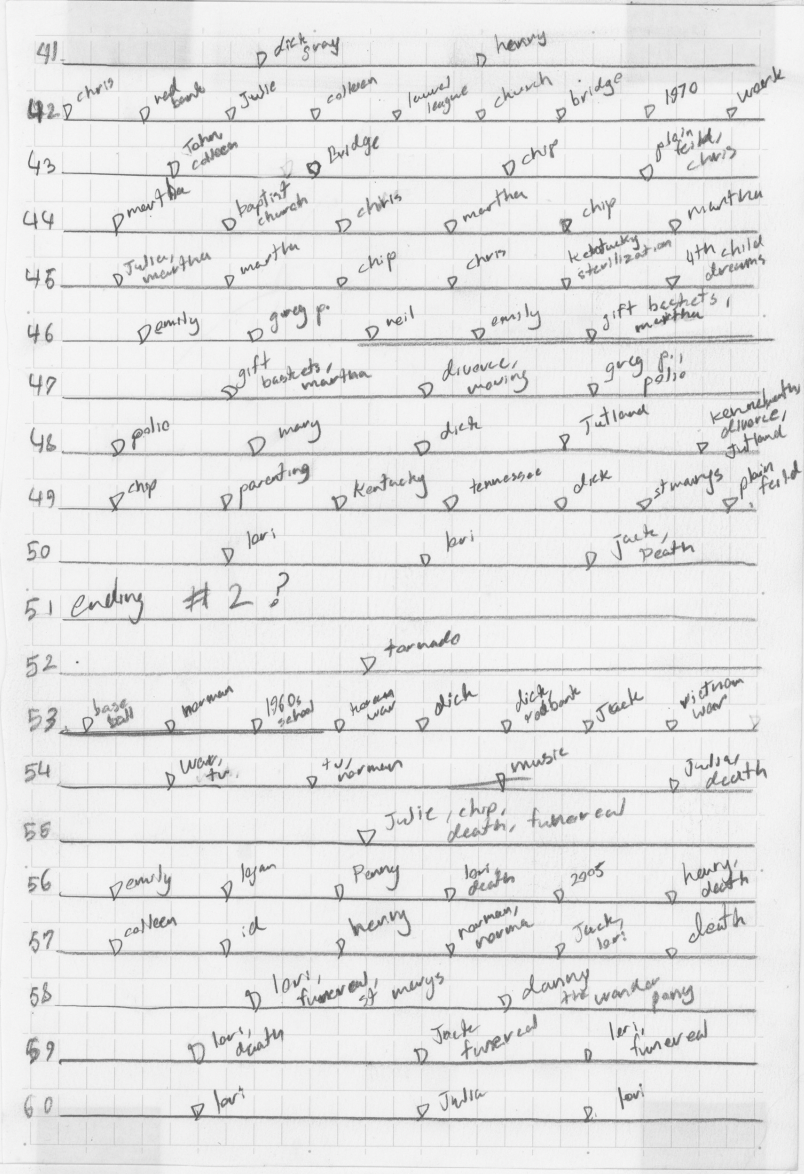 41 dick gray henry
42 chris red bank Julie colleen laurel league church bridge 1970 work
43 John, colleen Bridge chip plain feild, chris
44 martha baptist church chris martha chip martha
45 Julia, martha martha chip chris kentucky sterilization 4th child dreams
46 emily greg p. neil emily gift baskets, martha
47 gift baskets, martha divorce, moving greg p., polio
48 polio mary dick Jutland divorce, Jutland
49 chip parenting Kentucky tennessee dick st marys plain feild
50 lori lori Jack, Death
51 ending #2?
52 tornado
53 base ball norman 1960s school korean war dick dick, red bank Jack vietnam war
54 war, tv. tv, norman music Julia, death
55 Julie, chip, death, funereal
56 emily logan Penny lori, death 2005 henry, death
57 colleen id henry norman, norma Jack, lori death
58 lori, funereal, st marys danny the wonder pony
59 lori, death Jack funereal lori, funereal
60 lori Julia lori